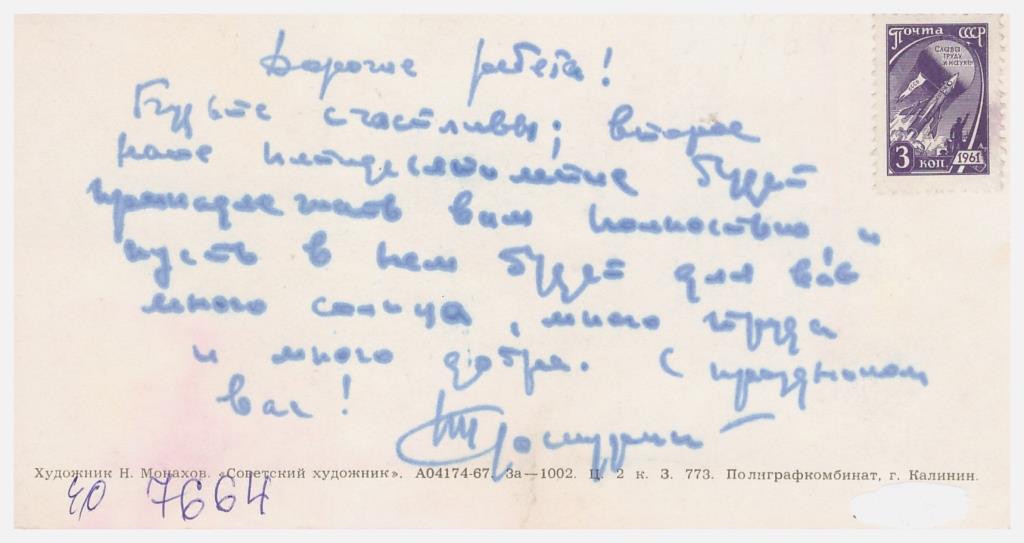 Почта СССР
Слава
труду
и науке
3 коп. 1961
Дорогие ребята!
Будьте счастливы; второе
наше пятидесятилетие будет
принадлежать вам полностью и
пусть в нем будет для вас
много солнца, много труда
и много добра. С праздником
вас!
Художник Н. Монахов. «Советский художник». А04174-67. За—1002. Ц. 2 к. З. 773. Полиграфкомбинат, г. Калинин.
7664